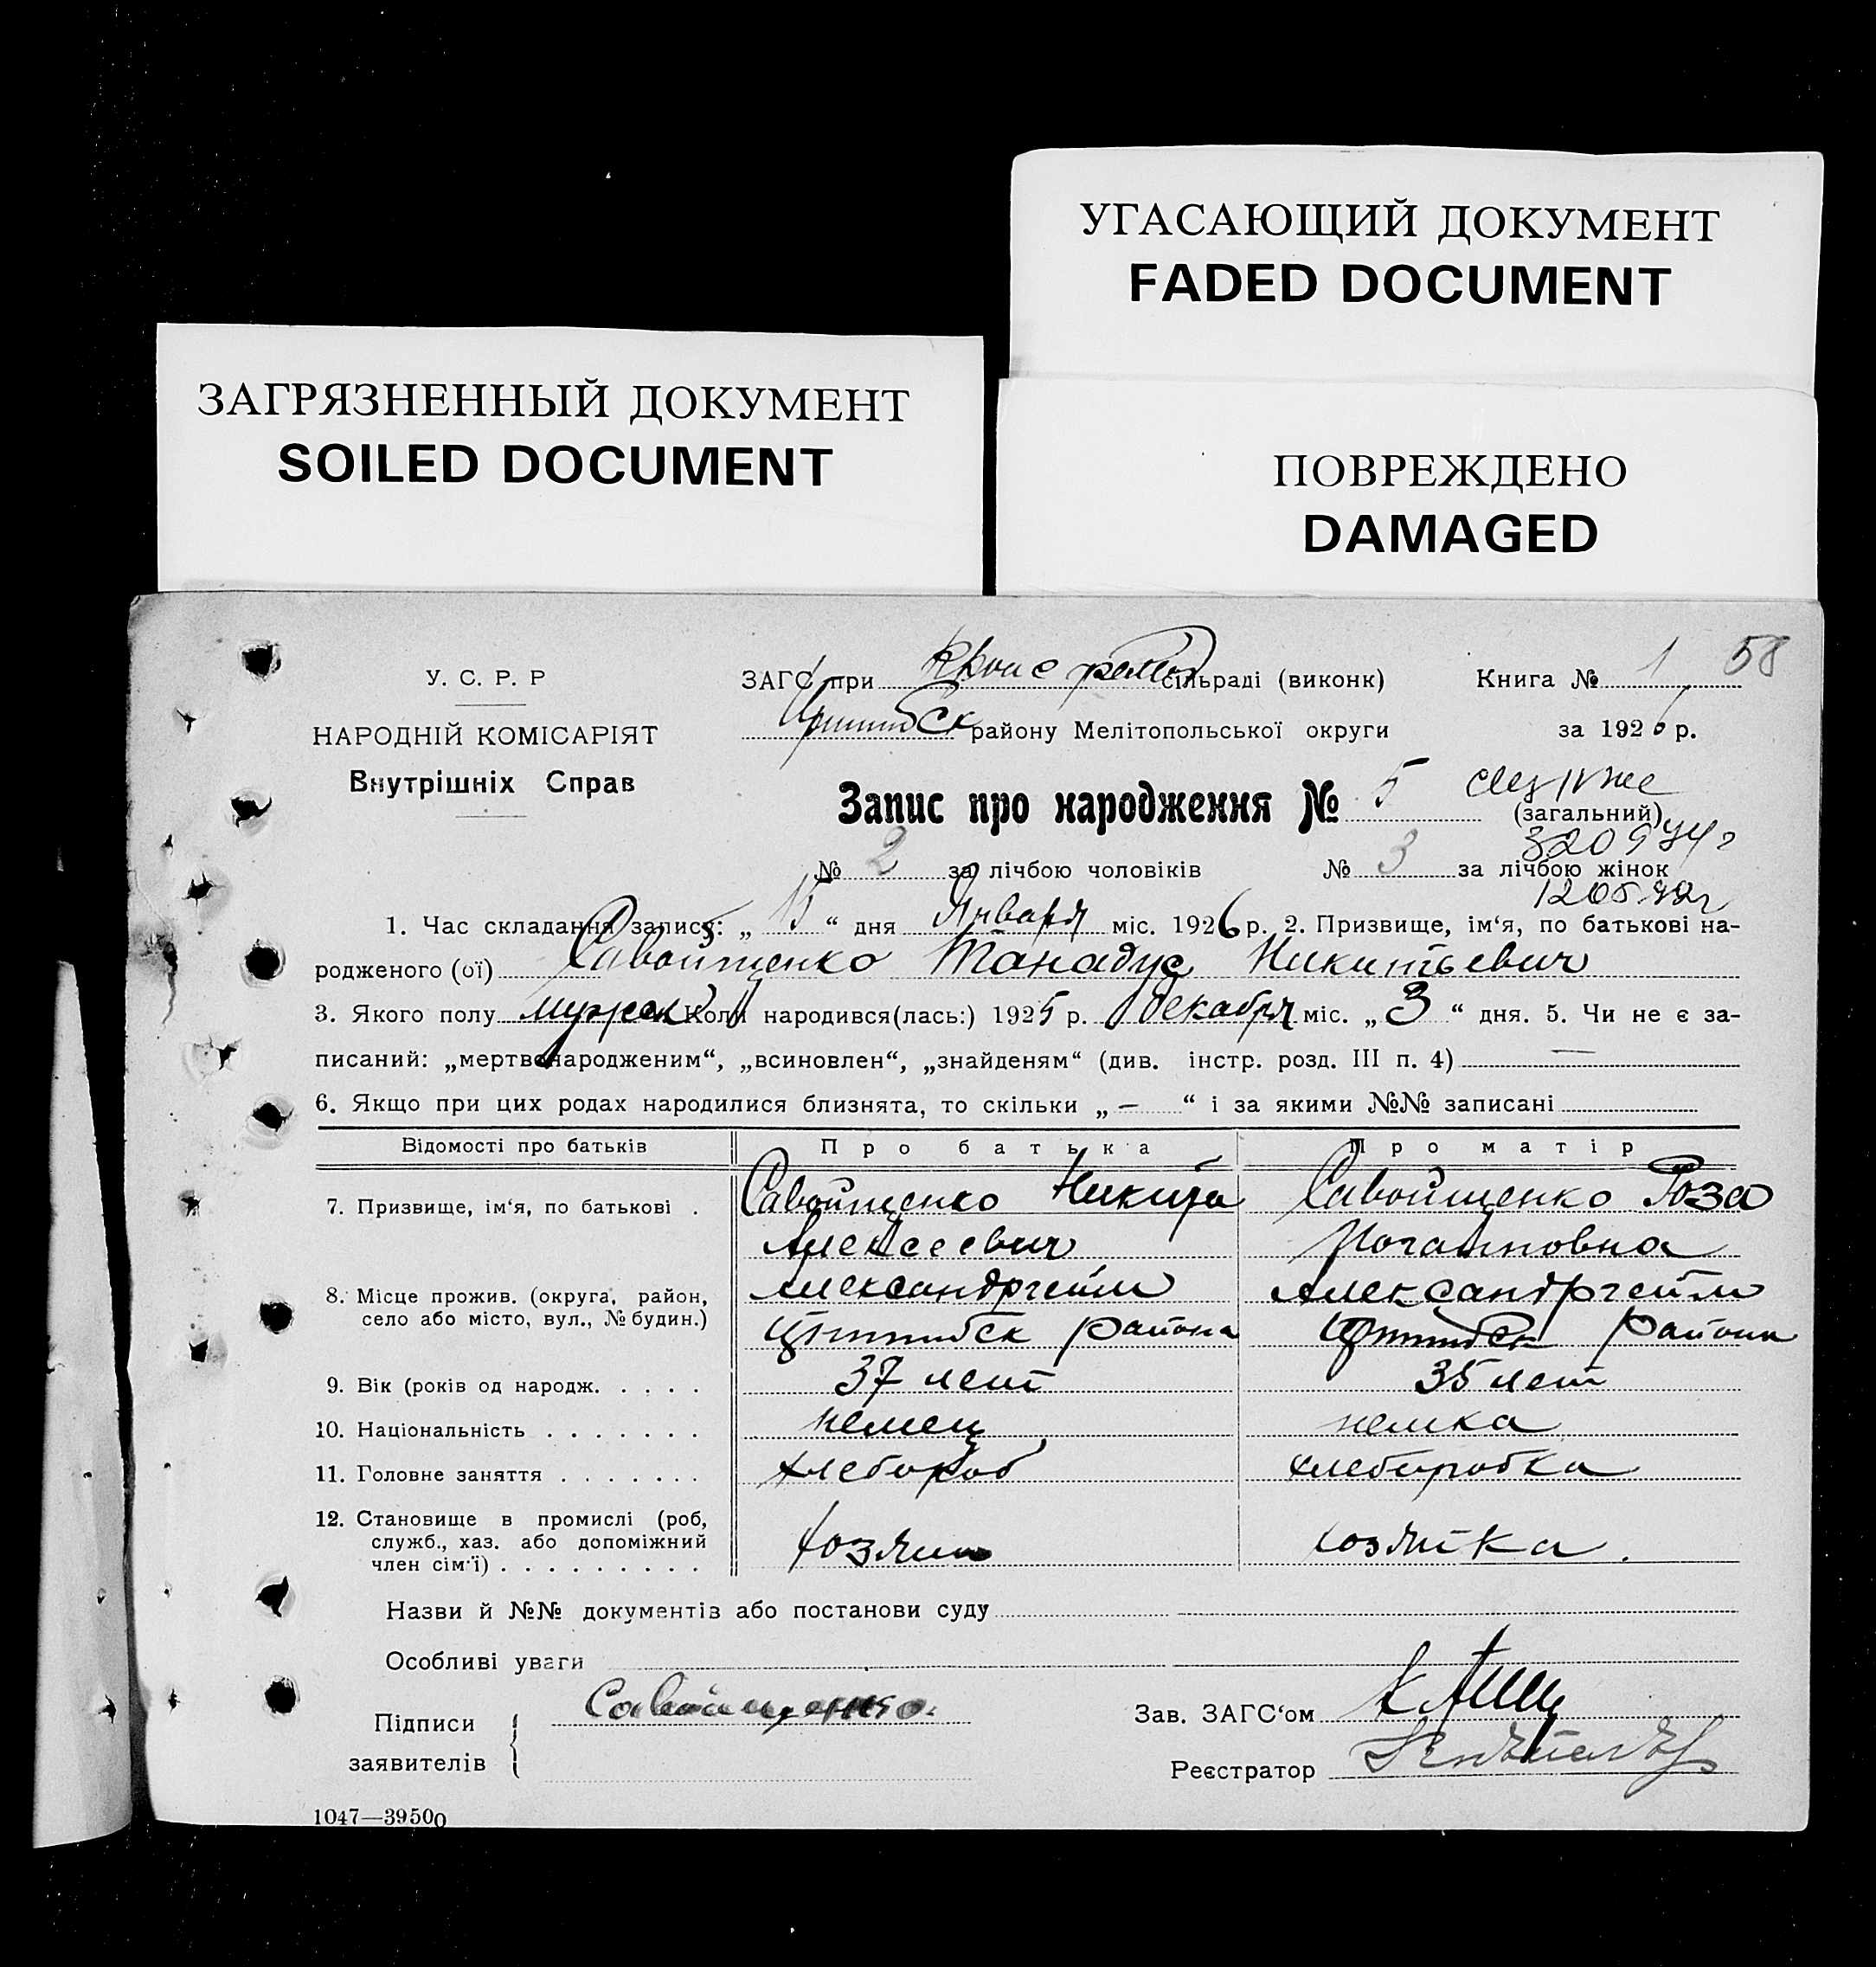 УГАСАЮЩИЙ ДОКУМЕНТ
FADED DOCUMENT
ЗАГРЯЗНЕННЫЙ ДОКУМЕНТ
SOILED DOCUMENT
ПОВРЕЖДЕНО
DAMAGED
58
У. С. Р. Р
ЗАГС при сільраді (виконк) Книга № 1
НАРОДНІЙ КОМІСАРІЯТ
району Мелітопольської округи за 1926 р.
Внутрішніх Справ
Запис про народження № 5 (загальний)
№ 2 за лічбою чоловіків № 3 за лічбою жінок
1. Час складання запису: „ 15 “ дня Января міс. 1926 р. 2. Призвище, ім‘я, по батькові на-
родженого (ої) Савойщенко Танадус Никитьевич
3. Якого полу мужск Коли народився(лась:) 1925 р. Декабря міс. „ 3 “ дня. 5. Чи не є за-
писаний: „мертвонародженим“, „всиновлен“, „знайденям“ (див. інстр. розд. III п. 4) —
6. Якщо при цих родах народилися близнята, то скільки „ — “ і за якими №№ записані
Відомості про батьків Про батька Про матір
7. Призвище, ім‘я, по батькові . Савойщенко Никита Савойщенко Роза
Алексеевич
8. Місце прожив. (округа, район, Александргейм Александргейм
село або місто, вул., № будин.) района района
9. Вік (років од народж. . . . . 37 лет 35 лет
10. Національність . . . . . . . немец немка
11. Головне заняття . . . . . . . хлебороб хлеборобка
12. Становище в промислі (роб,
служб., хаз. або допоміжний хозяин хозяйка.
член сім‘ї) . . . . . . . . .
Назви й №№ документів або постанови суду
Особливі уваги
Підписи Савойщенко.
Зав. ЗАГС‘ом
заявителів
Реєстратор
1047—39500